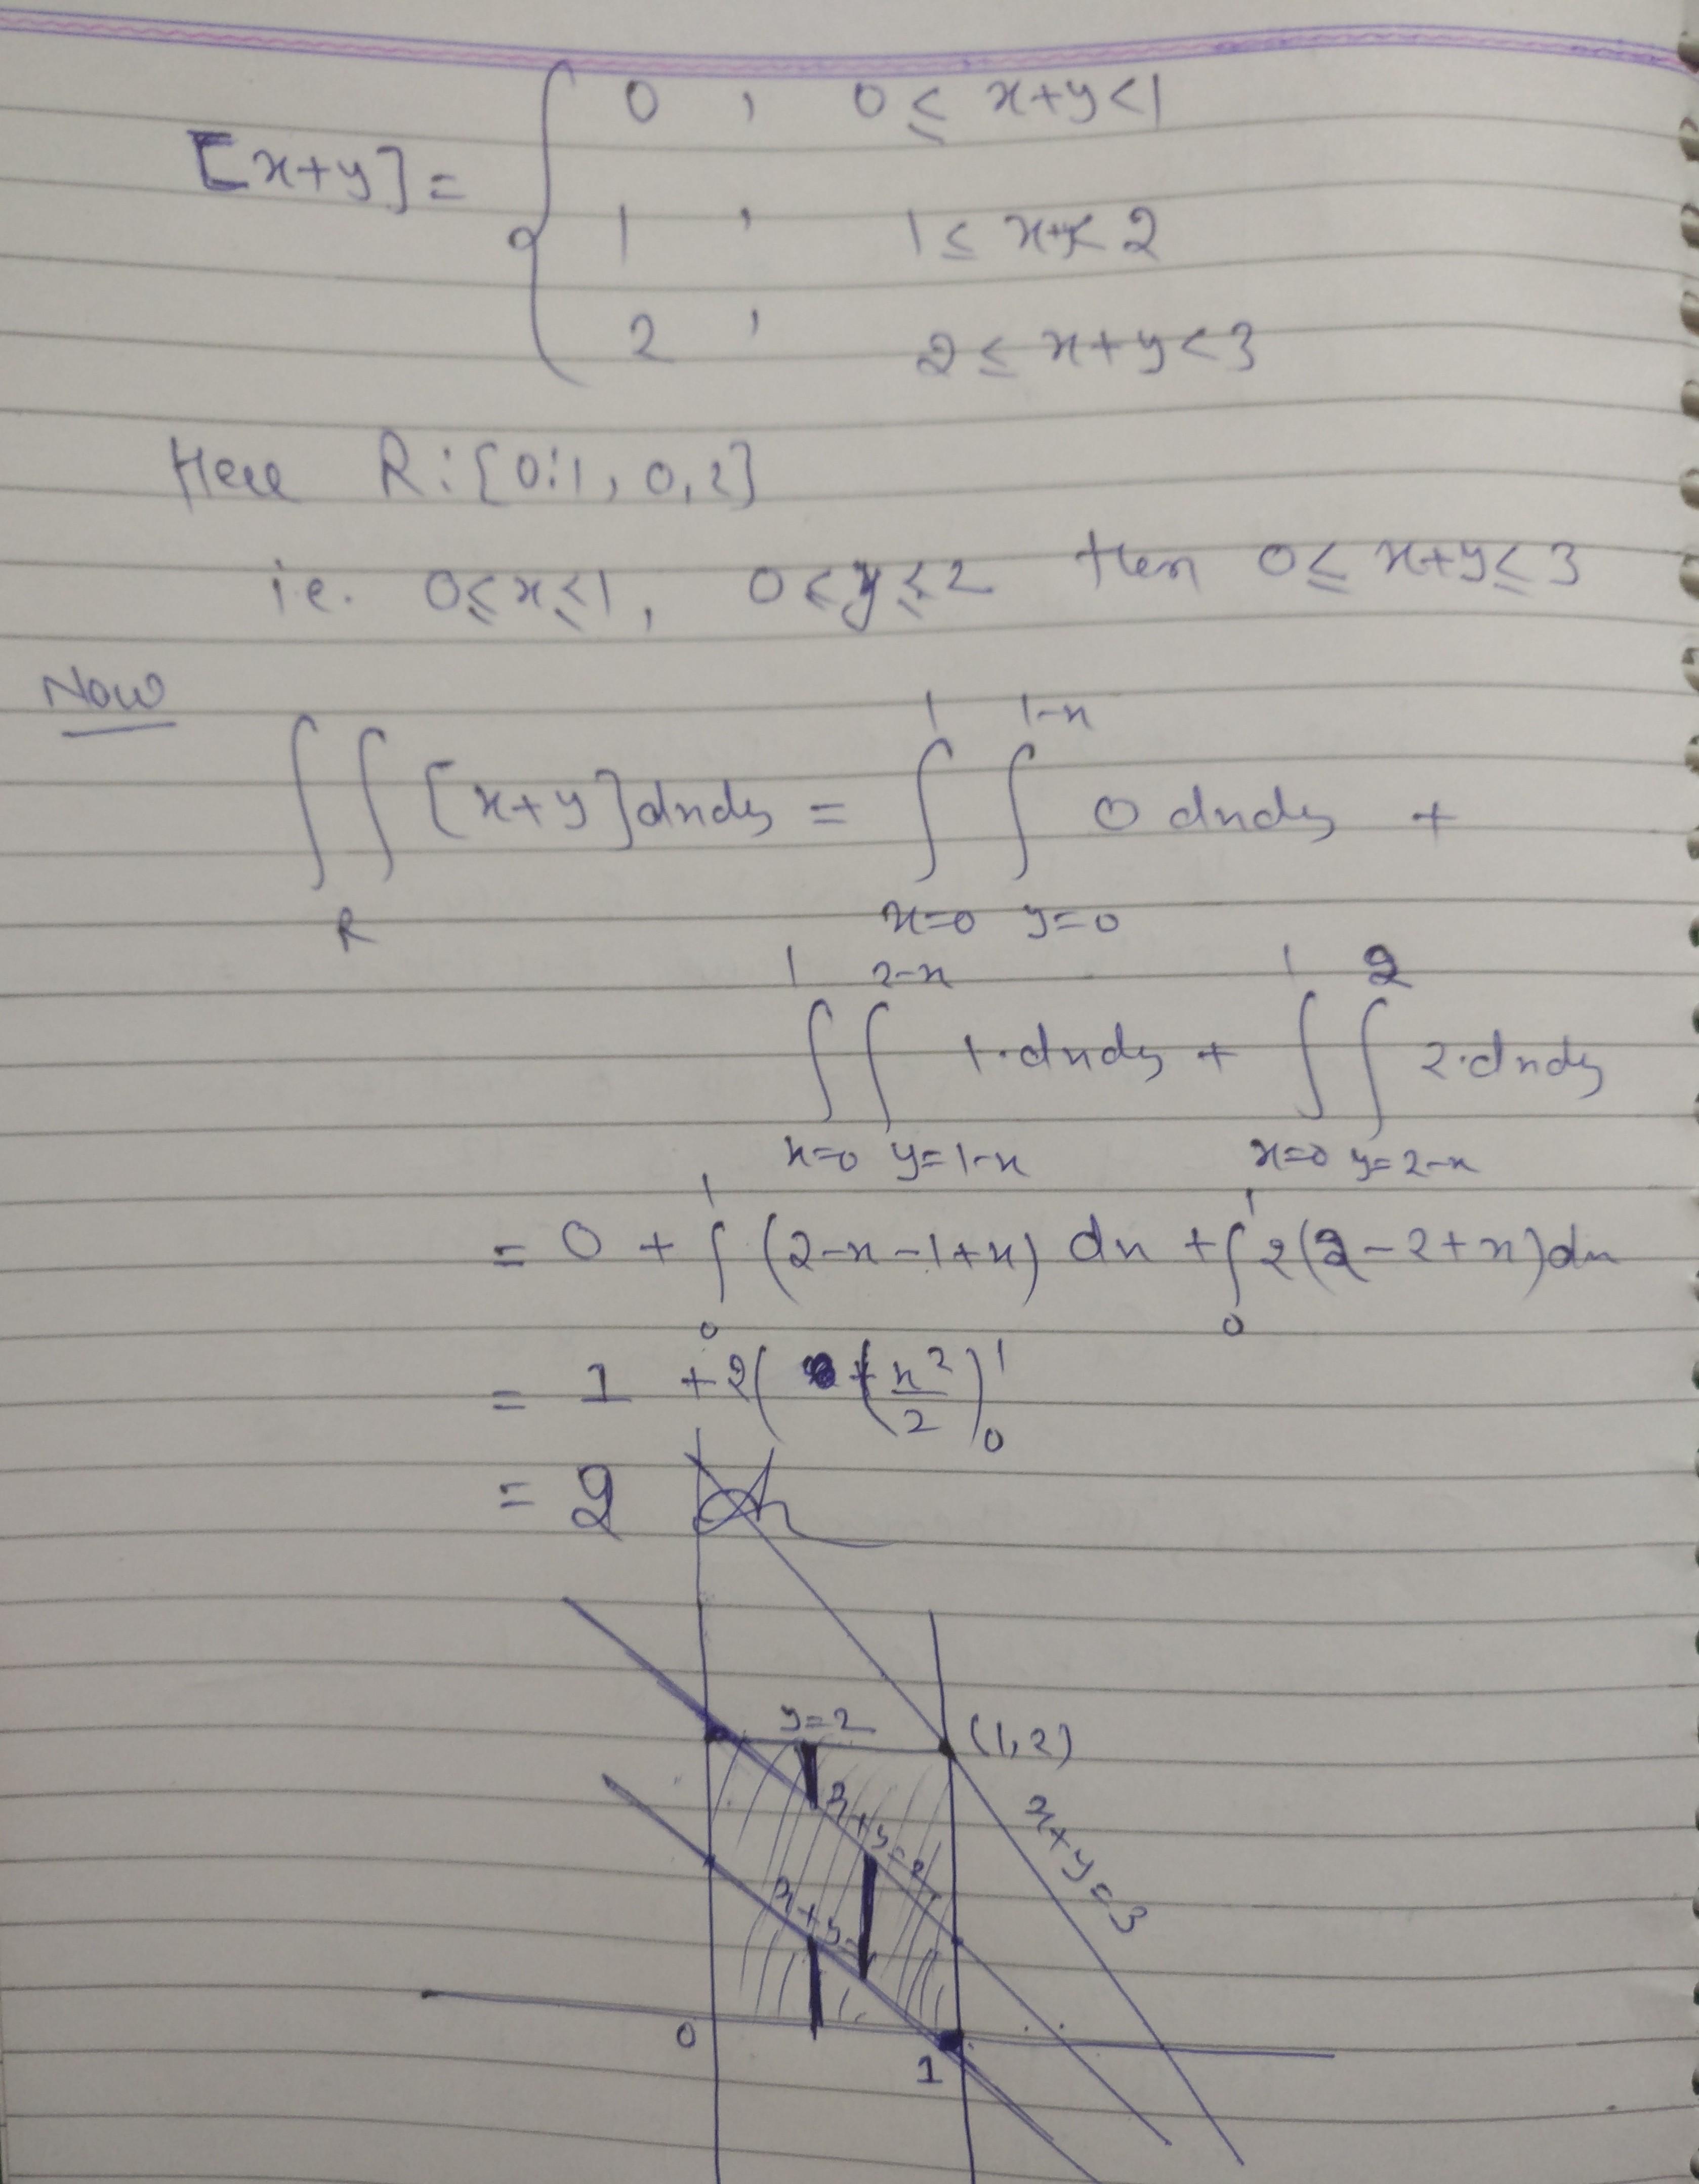 [x+y] = { 0 , 0 ≤ x+y < 1
1 , 1 ≤ x+y < 2
2 , 2 ≤ x+y < 3
Here R : [0:1, 0,2]
i.e. 0≤x≤1, 0≤y≤2 then 0≤ x+y ≤ 3
Now
∫∫_R [x+y] dxdy = ∫_{x=0}^{1} ∫_{y=0}^{1-x} 0 dxdy +
∫_{x=0}^{1} ∫_{y=1-x}^{2-x} 1·dxdy + ∫_{x=0}^{1} ∫_{y=2-x}^{2} 2·dxdy
= 0 + ∫_0^1 (2-x-1+x) dx + ∫_0^1 2(2-2+x) dx
= 1 + 2( (x²/2)_0^1
= 2
y=2
(1,2)
x+y=2
x+y=3
x+y=
0
1